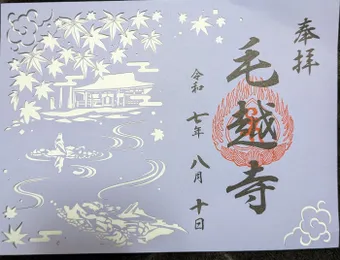 奉拝
毛越寺
令和七年八月十日